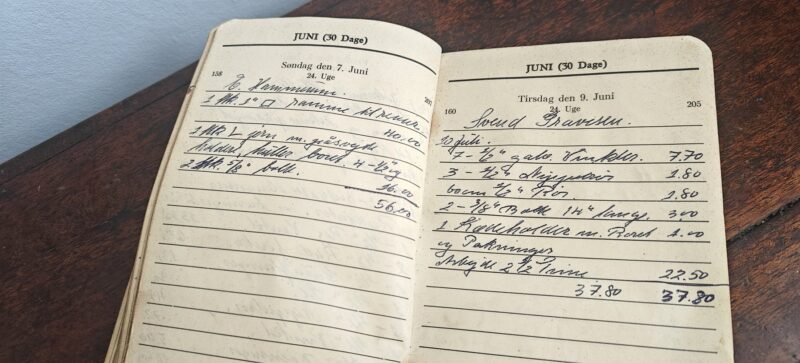 JUNI (30 Dage)
Søndag den 7. Juni
158
24. Uge
207
E. Hammerum.
1 stk. 1" □ ramme
40.00
1 stk L jern m. påsvejs
boet 4 - 1/2" og
2 stk. 5/8" bolt.
16.00
56.00
JUNI (30 Dage)
Tirsdag den 9. Juni
160
24. Uge
205
Svend Gravesen.
10 juli.
7 - 1/2" galv. Vinkler. 7.70
3 - 1/2" Nippelrør 1.80
1/2" Rør 1.80
2 - 3/8" Bolt 14" lange. 3.00
1 Kædeholder m. 1.00
og Pakninger
Arbejde 2 1/2 Time. 22.50
37.80 37.80